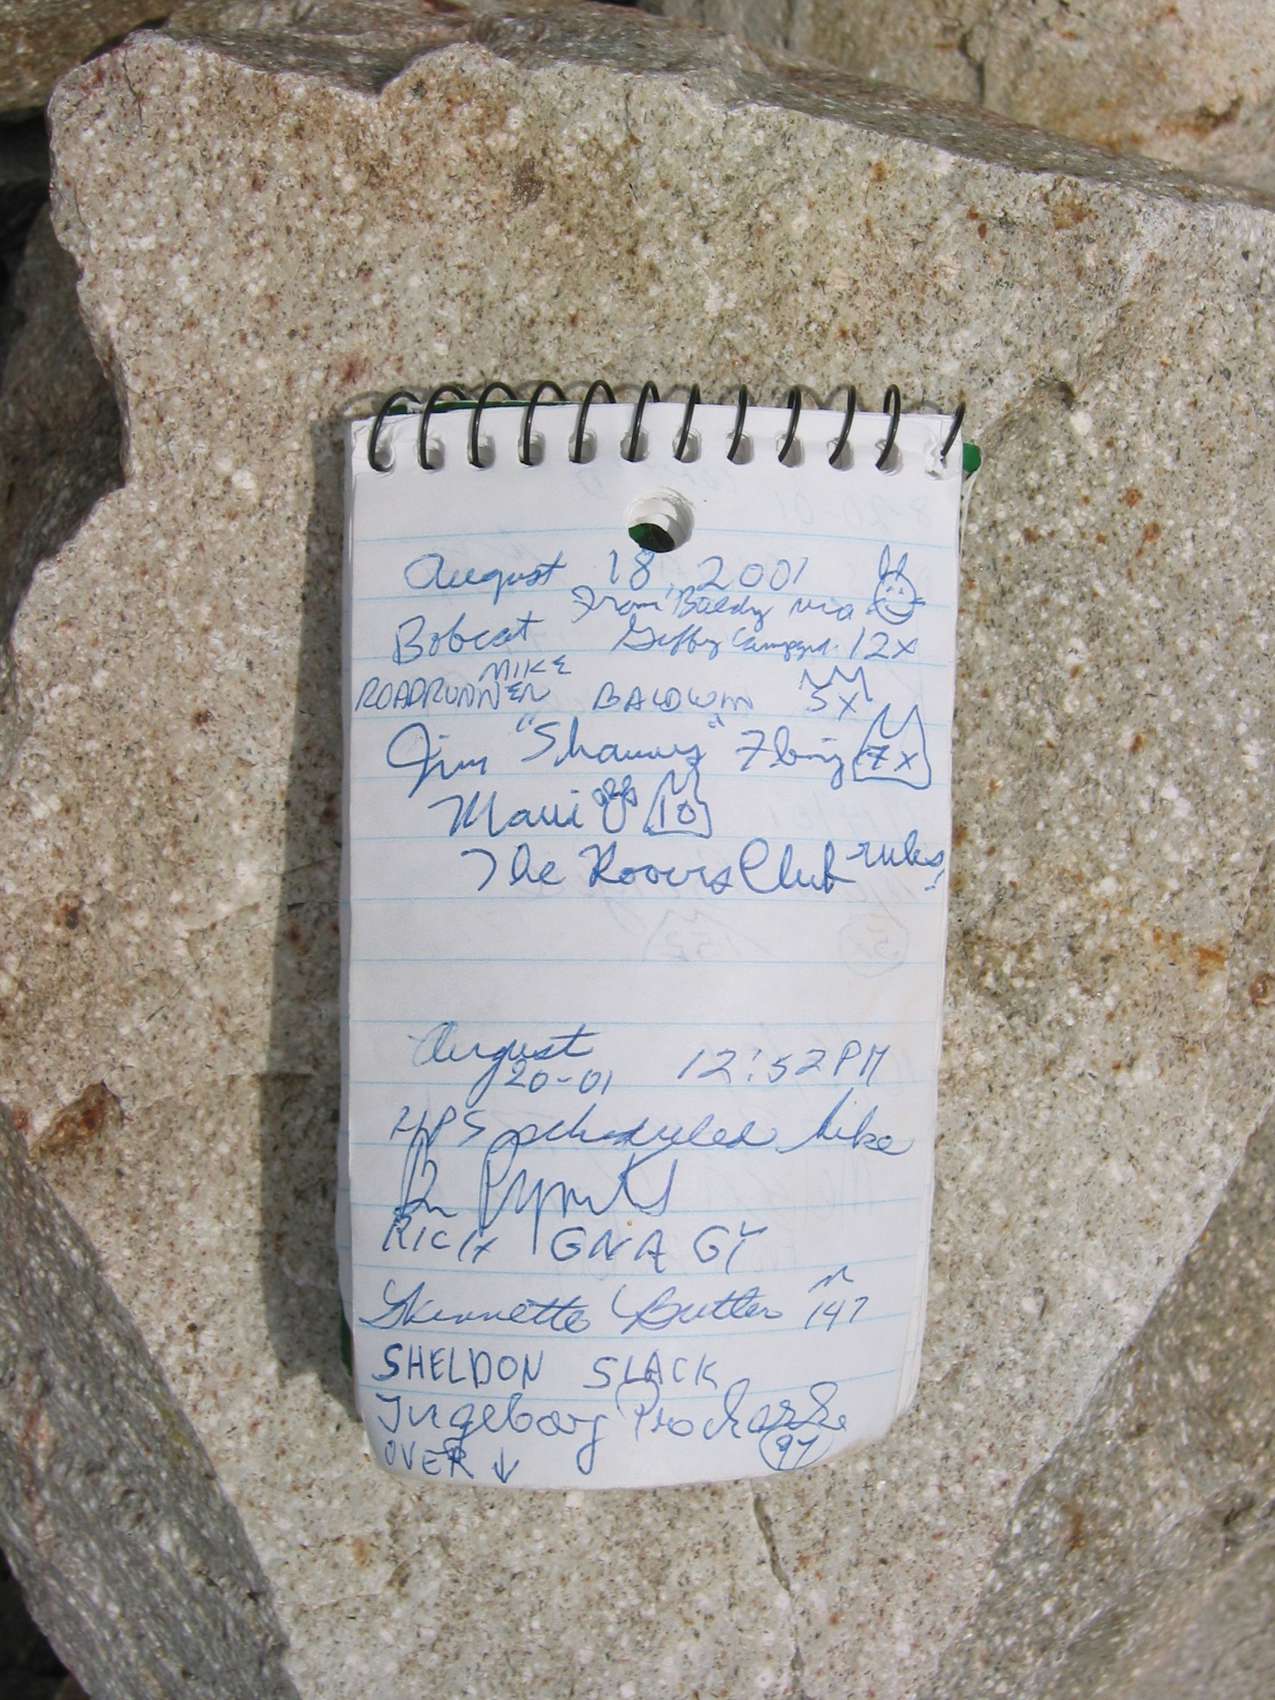 August 18, 2001
From Baldy via
Bobcat Campgrd. 12x
MIKE
ROADRUNNER BALDWIN 5x
Jim "Shawny" 7x
Maui 10
The Rovers Club rules!
August
20-01 12:52 PM
HPS scheduled hike
RICK GNAGY
Butler 147
SHELDON SLACK
Ingeborg Prochazka
97
OVER ↓